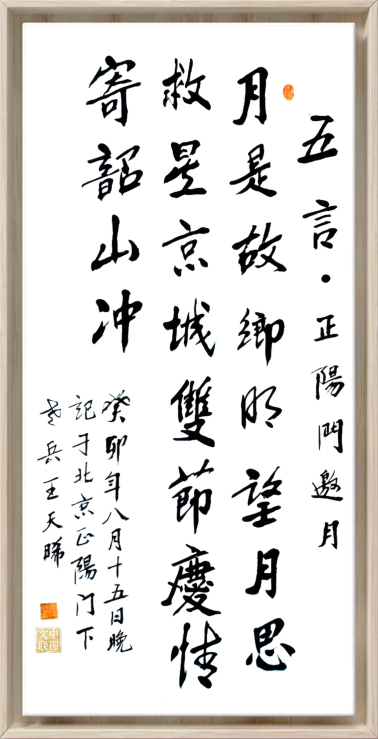 五言·正陽門邀月
月是故鄉明望月思
救星京城雙節慶情
寄韶山冲
癸卯年八月十五日晚
記于北京正陽门下
老兵王天晞